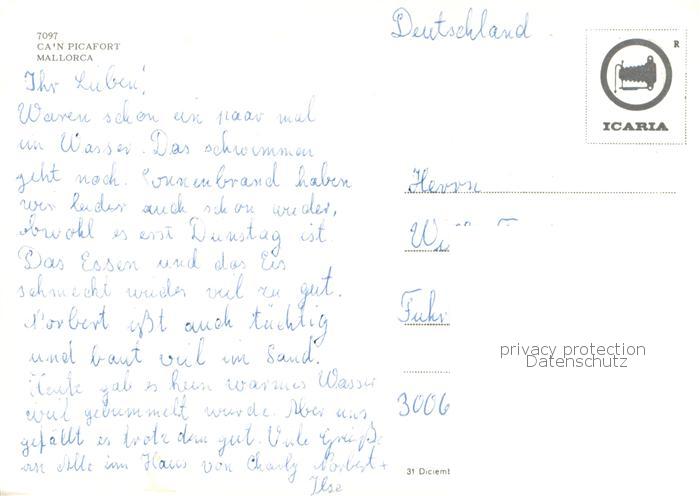 7097
CA'N PICAFORT
MALLORCA
Ihr Lieben!
Waren schon ein paar mal
im Wasser. Das schwimmen
geht noch. Sonnenbrand haben
wir leider auch schon wieder,
obwohl es erst Dienstag ist.
Das Essen und das Eis
schmeckt wieder viel zu gut.
Norbert ißt auch tüchtig
und baut viel im Sand.
Heute gab es kein warmes Wasser
weil gebummelt wurde. Aber uns
gefällt es trotzdem gut. Viele Grüße
an Alle im Haus von Charly Norbert +
Ilse
Deutschland
R
ICARIA
Herrn
Fuhr
3006
privacy protection
Datenschutz
31 Diciemt